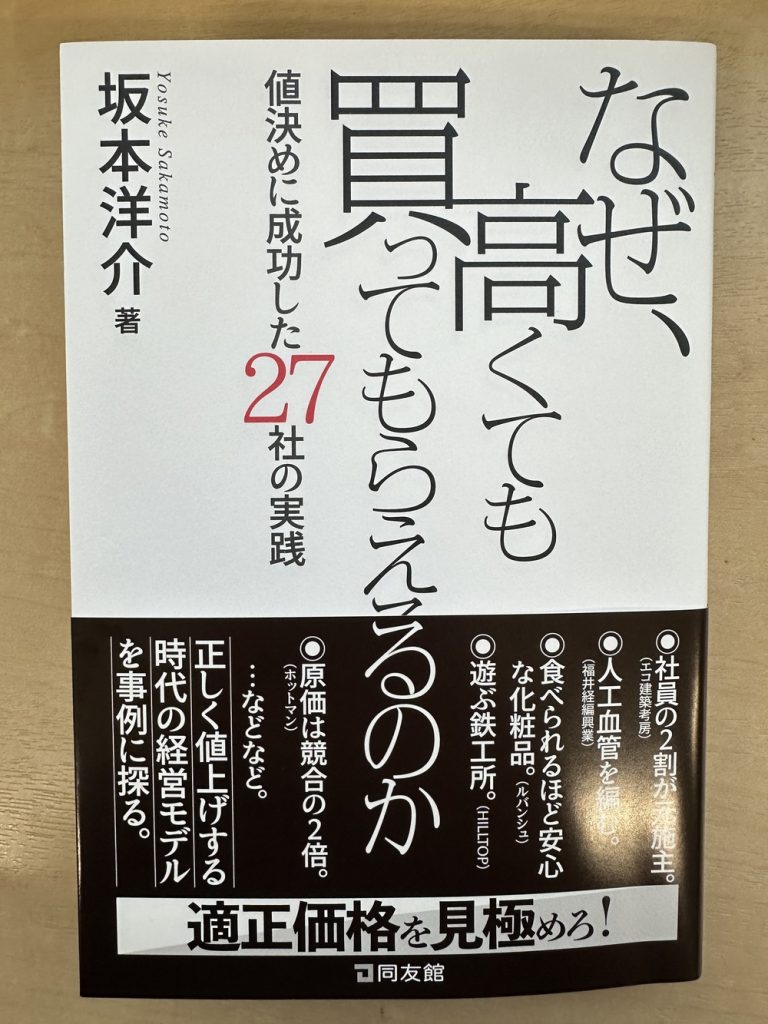 なぜ、
高くても
買ってもらえるのか
値決めに成功した27社の実践
Yosuke Sakamoto
坂本洋介 著
◉社員の2割が元施主。
(エコ建築考房)
◉人工血管を編む。
(福井経編興業)
◉食べられるほど安心
な化粧品。(ルバンシュ)
◉遊ぶ鉄工所。(HILLTOP)
◉原価は競合の2倍。
(ホットマン)
…などなど。
正しく値上げする
時代の経営モデル
を事例に探る。
適正価格を見極めろ!
同友館